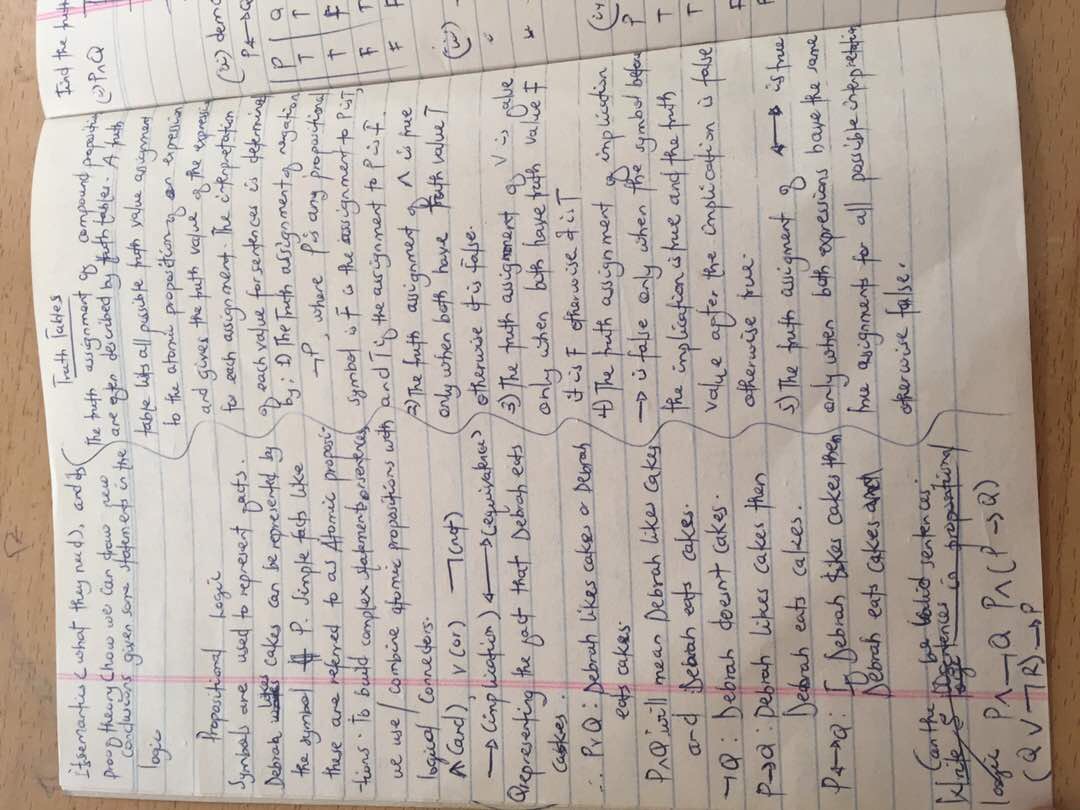 its semantics (what they mean), and its
proof theory (how we can draw new
conclusions given some statements in the
logic
Propositional Logic
Symbols are used to represent facts.
Debrah likes cakes can be represented by
the symbol P. Simple facts like
these are referred to as Atomic proposi-
tions. To build complex statements/sentences
we use / combine atomic propositions with
logical connectors.
∧ (and), ∨ (or) ¬ (not)
→ (implication) ↔ (equivalence)
Q representing the fact that Debrah eats
cakes.
∴ P∨Q : Debrah likes cakes or Debrah
eats cakes
P∧Q will mean Debrah likes cakes
and Debrah eats cakes.
¬Q : Debrah doesnt cakes.
P→Q : Debrah likes cakes then
Debrah eats cakes.
P↔Q : If Debrah likes cakes then
Debrah eats cakes and
Can the be valid sentences.
Write 5 sentences in propositional
logic P∧¬Q P∧(P→Q)
(Q∨¬R)→P
Truth Tables
The truth assignment of compound propositions
are often described by truth tables. A truth
table lists all possible truth value assignment
to the atomic proposition of an expression
and gives the truth value of the expression
for each assignment. The interpretation
of each value for sentences is determined
by: 1) The Truth assignment of negation
¬P, where P is any propositional
symbol is F is the assignment to P is T,
and T if the assignment to P is F.
2) The truth assignment of ∧ is true
only when both have truth value T
otherwise it is false.
3) The truth assignment of ∨ is false
only when both have truth value F
it is F otherwise it is T
4) The truth assignment of implication
→ is false only when the symbol before
the implication is true and the truth
value after the implication is false
otherwise true.
5) The truth assignment of ↔ is true
only when both expressions have the same
true assignment for all possible interpretation
otherwise false.
Find the truth
(i) P∧Q
(ii) dem
P↔Q
P | Q
T | T
T | F
F | T
F | F
(iii)
(iv)
P
T
T
F